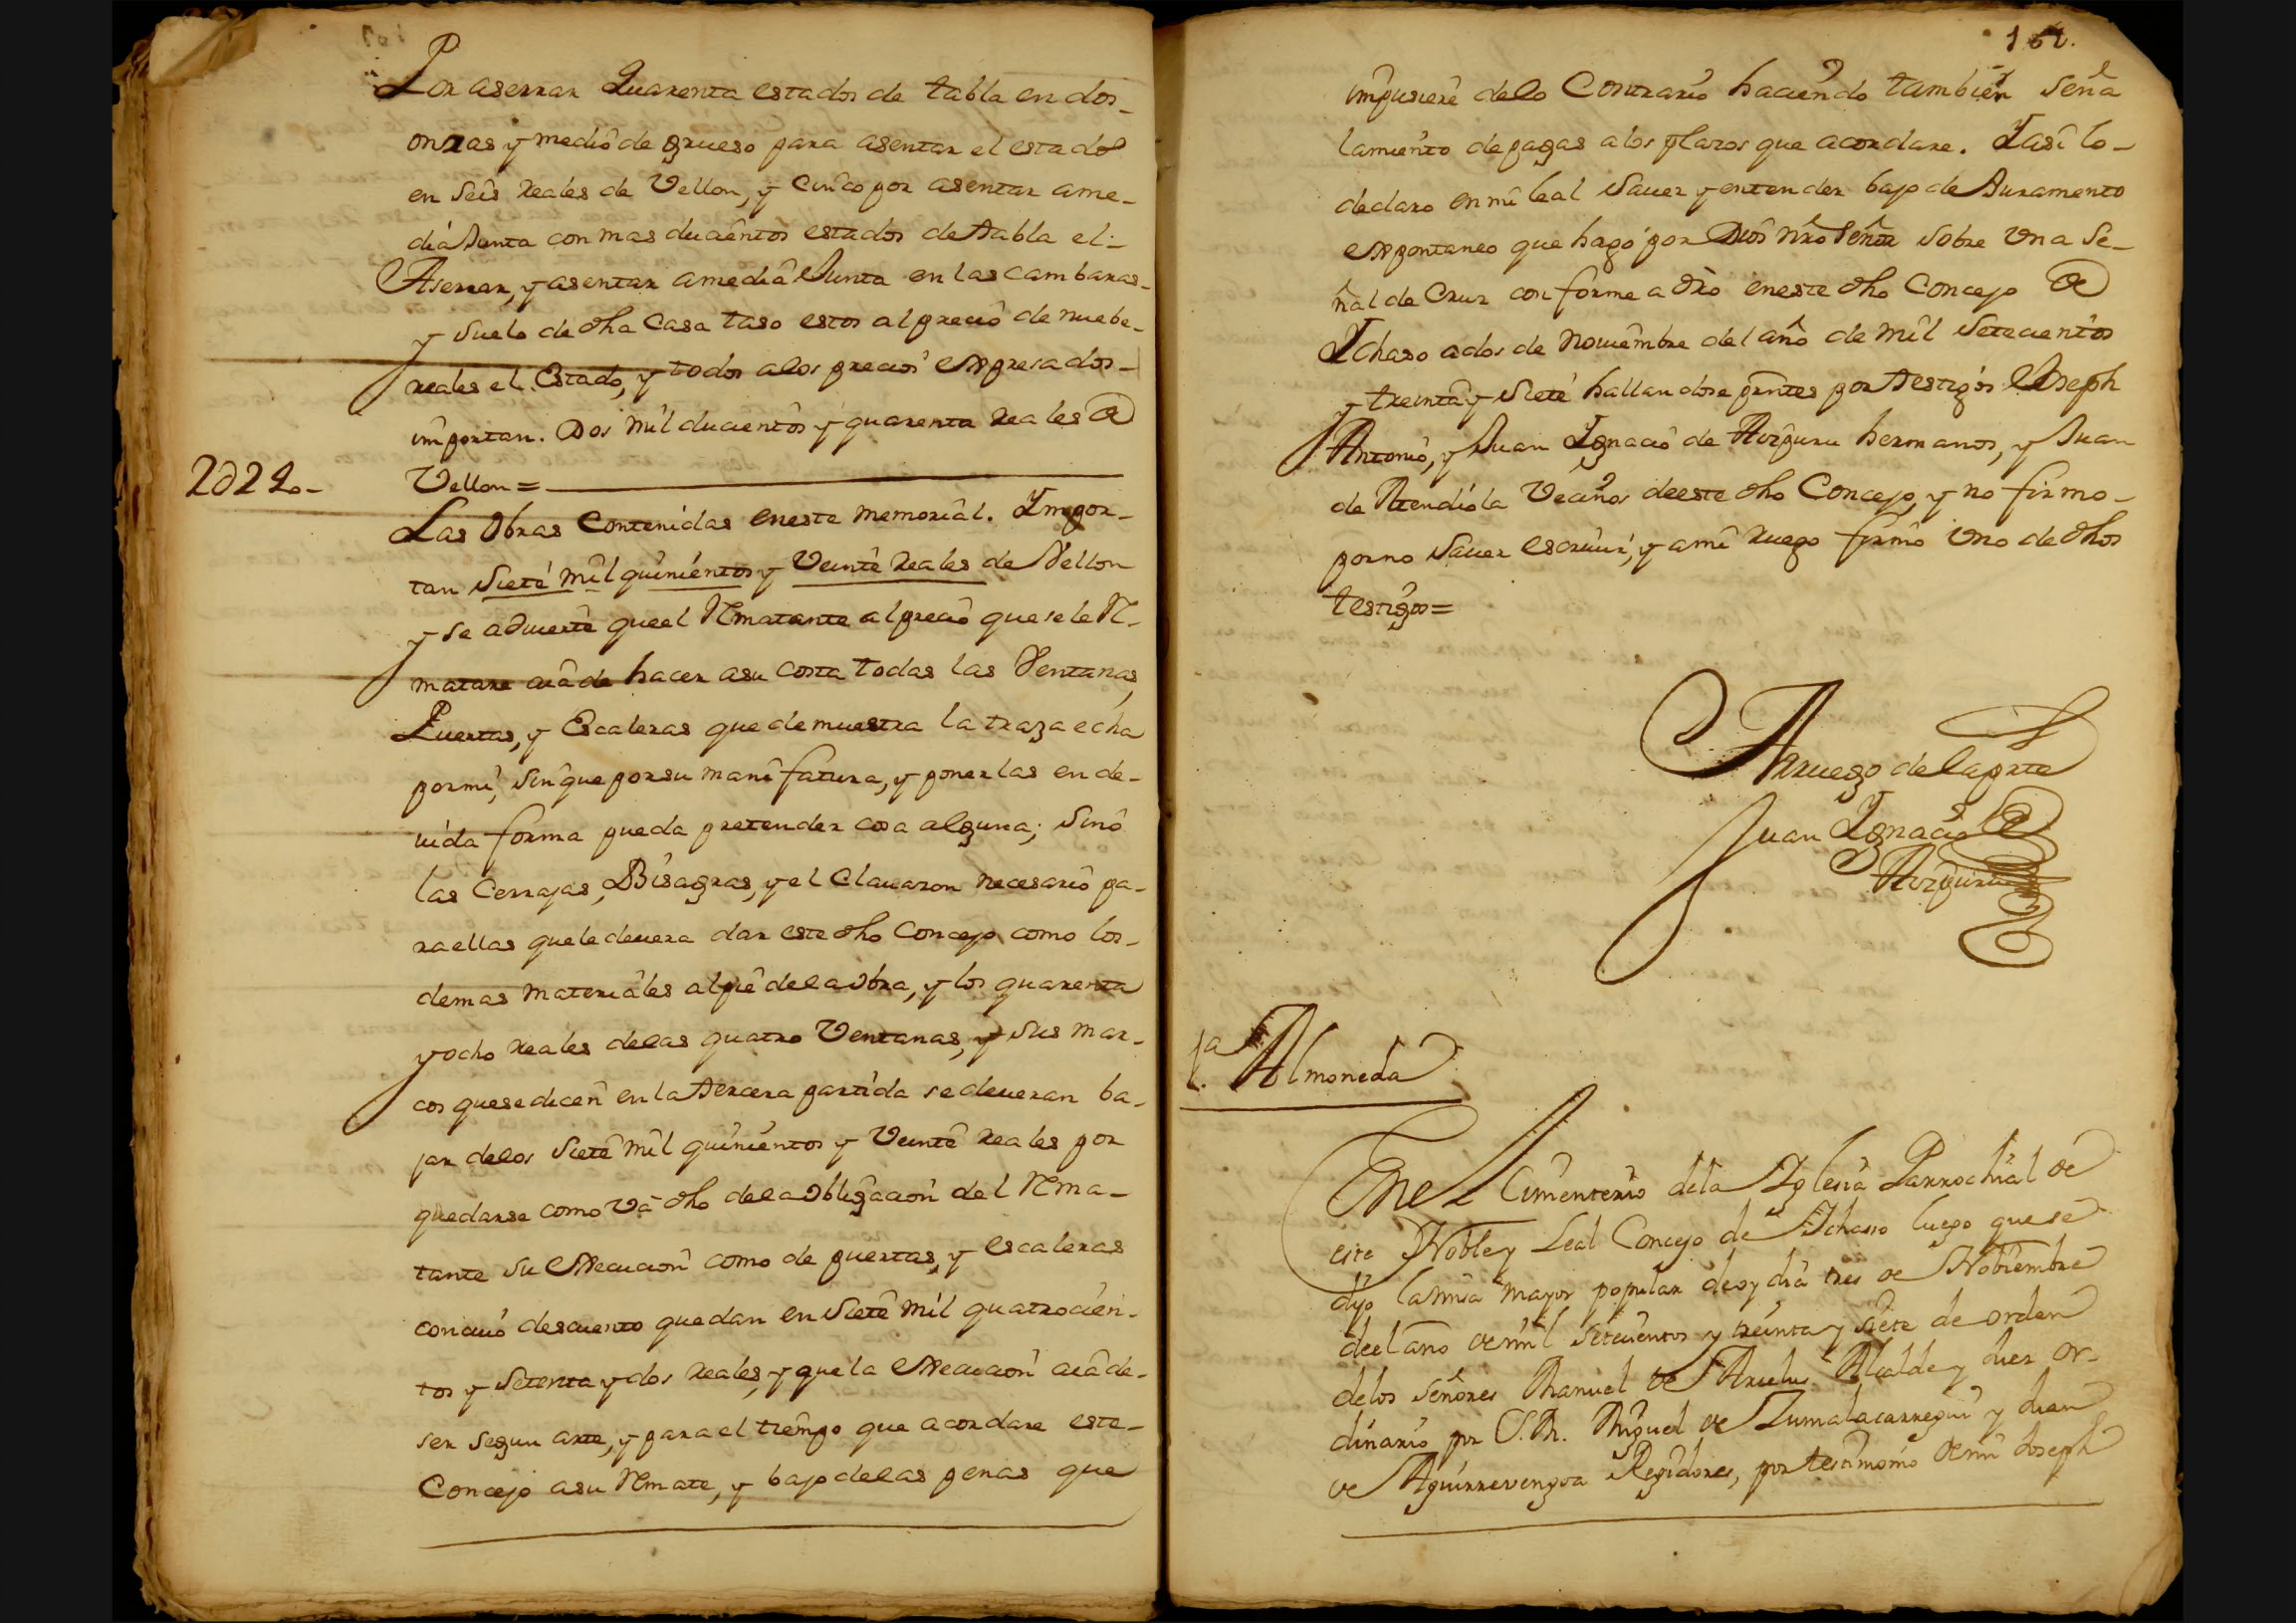 Por aserrar Quarenta estados de tabla en dos-
onzas y medio de grueso para asentar el estado
en seis reales de Vellon, y cinco por asentar ame-
dia Junta con mas ducientos estados de tabla el-
Aserrar, y asentar a media Junta en las cambaras-
y suelo de dha Casa taso estos al precio de nuebe-
reales el Estado, y todos a los precios expresados-
importan. Dos mil ducientos y quarenta reales de
2024o- Vellon =
Las Obras Contenidas en este memorial. Impor-
tan Siete mil quinientos y Veinte reales de Vellon
y se advierte que el Rematante al precio que se le Re-
matare aia de hacer a su costa todas las Ventanas,
Puertas, y Escaleras que demuestra la traza echa
por mi, sin que por su manifatura, y ponerlas en de-
vida forma pueda pretender cosa alguna; Sino
las Cerrajas, Bisagras, y el Clavazon necesario pa-
ra ellas que le devera dar este dho Concejo como los-
demas materiales al pie de la obra, y los quarenta
y ocho reales de las quatro Ventanas, y sus mar-
cos que se dicen en la tercera partida se deveran ba-
jar de los Siete mil quinientos y Veinte reales por
quedarse como va dho de la obligacion del Rema-
tante su execucion como de puertas, y escaleras
con cuio descuento quedan en Siete mil quatrocien-
tos y Setenta y dos reales, y que la execucion aia de-
ser segun arte, y para el tiempo que acordare este-
Concejo a su Remate, y bajo de las penas que
162.
impusiere de lo Contrario haciendo tambien Seña
lamiento de pagas a los plazos que acordare. Y asi lo-
declaro en mi leal Saver y entender bajo de Juramento
expontaneo que hago por Dios nro Señor sobre una Se-
ñal de Cruz conforme a dro en este dho Concejo de
Ichaso a dos de Noviembre del año de mil Setecientos
y treinta y Siete hallandose prntes por testigos Joseph
Antonio, y Juan Ignacio de Aizpuru hermanos, y Juan
de Mendiola Vecinos de este dho Concejo, y no firmo-
por no Saver escrivir, y a mi ruego firmo Uno de dhos
testigos =
A ruego de la prte
Juan Ignacio de
Aizpuru
1a. Almoneda
En el Cimenterio de la Iglesia Parrochial de
este Noble y Leal Concejo de Ichasso luego que se
dijo la missa mayor popular de oy dia tres de Nobiembre
de el año de mil setecientos y treinta y siete de orden
de los señores Manuel de Aruelus Alcalde y Juez or-
dinario por S. M. Miguel de Zumalacarregui y Juan
de Aguirrevengoa Regidores, por testimonio de mi Joseph